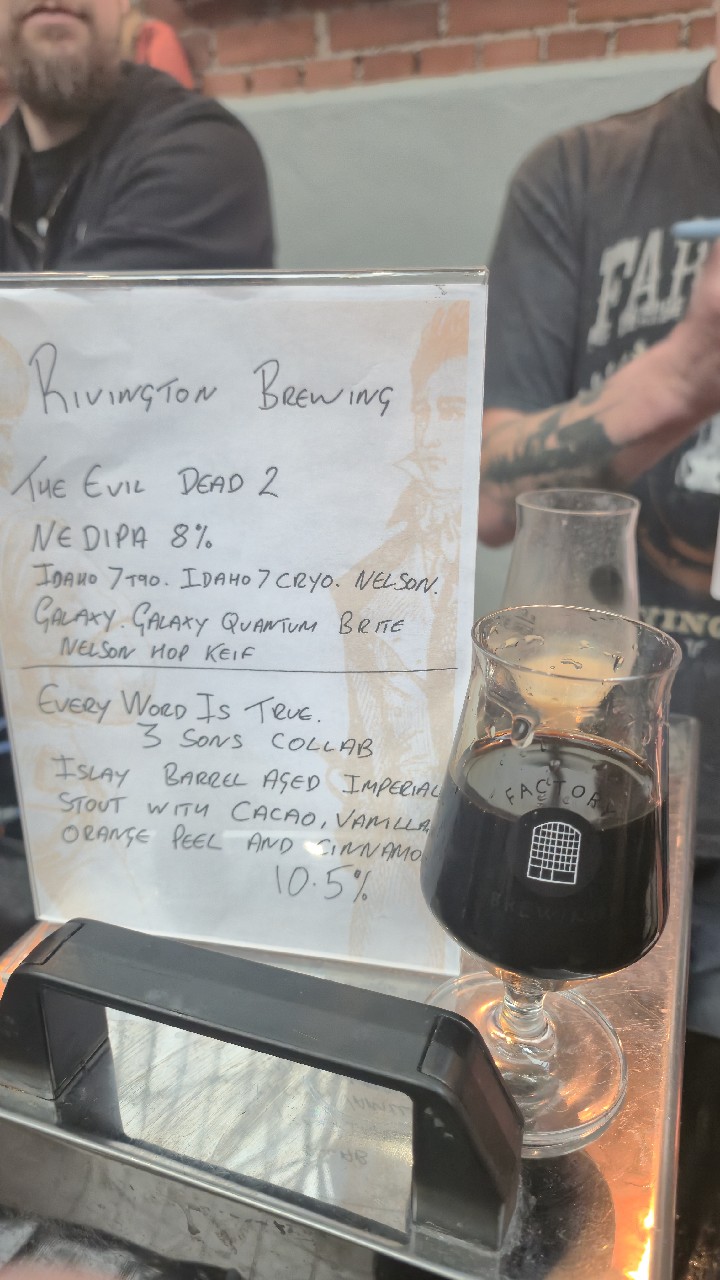 RIVINGTON BREWING
THE EVIL DEAD 2
NE DIPA 8%
IDAHO 7 T90. IDAHO 7 CRYO. NELSON.
GALAXY. GALAXY QUANTUM BRITE
NELSON HOP KEIF
EVERY WORD IS TRUE.
3 SONS COLLAB
ISLAY BARREL AGED IMPERIAL
STOUT WITH CACAO, VANILLA,
ORANGE PEEL AND CINNAMO
10.5%
FACTORY
BREWING
FAH